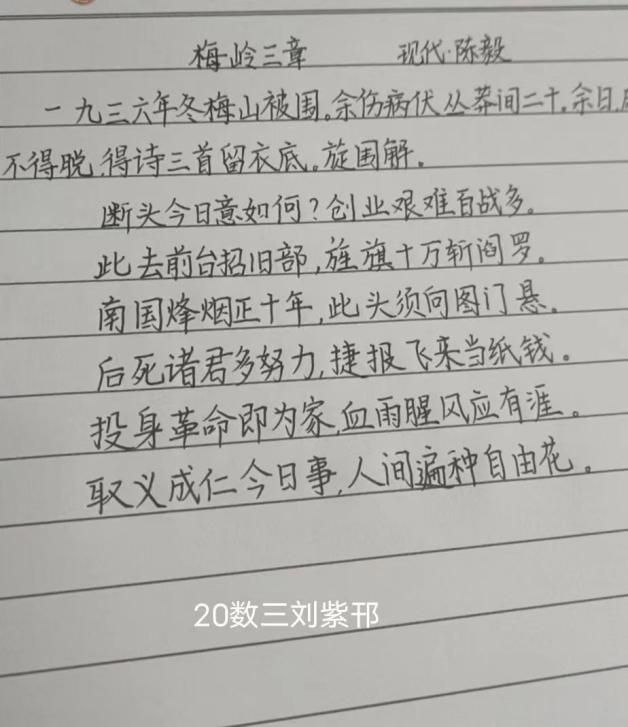 梅岭三章 现代·陈毅
一九三六年冬梅山被围。余伤病伏丛莽间二十。余日
不得脱,得诗三首留衣底。旋围解。
断头今日意如何?创业艰难百战多。
此去前台招旧部,旌旗十万斩阎罗。
南国烽烟正十年,此头须向图门悬。
后死诸君多努力,捷报飞来当纸钱。
投身革命即为家,血雨腥风应有涯。
取义成仁今日事,人间遍种自由花。
20数三刘紫邗